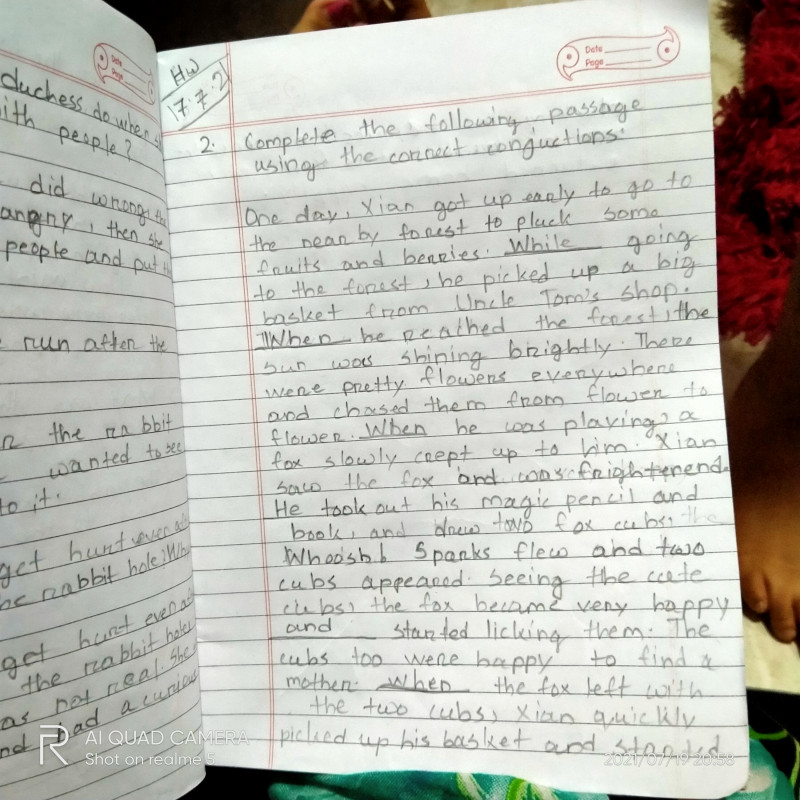 Date
Page
duchess do when s
ith people?
did wroong, th
angry, then she
people and put th
run after the
the rabbit
wanted to see
to it.
get hurt even a
he rabbit hole? Wha
get hurt even a
the rabbit hole,
as not real. She
nd had a curious
HW
17.7.2
Date
Page
2. Complete the following passage
using the correct conjuctions.
One day, Xian got up early to go to
the near by forest to pluck some
fruits and berries. While going
to the forest, he picked up a big
basket from Uncle Tom's shop.
When he reached the forest, the
sun was shining brightly. There
were pretty flowers everywhere
and chased them from flower to
flower. When he was playing, a
fox slowly crept up to him. Xian
saw the fox and was frightenend
He took out his magic pencil and
book, and drew two fox cubs, the
Whoosh! Sparks flew and two
cubs appeared. Seeing the cute
cubs, the fox became very happy
and started licking them. The
cubs too were happy to find a
mother. When the fox left with
the two cubs, Xian quickly
picked up his basket and started
AI QUAD CAMERA
Shot on realme 5
2021/07/19 20:53